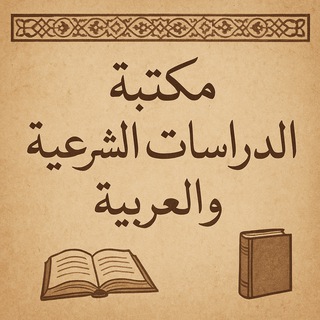 مكتبة
الدراسات الشرعية
والعربية